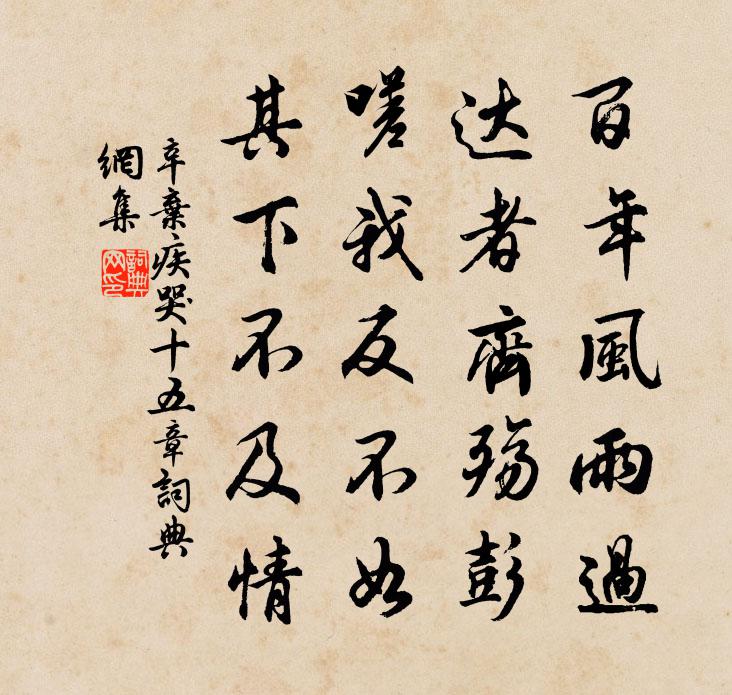 百年風雨過
达者齊殤彭
嗟我反不如
其下不及情
辛棄疾哭十五章詞典
網集
詞典
网印